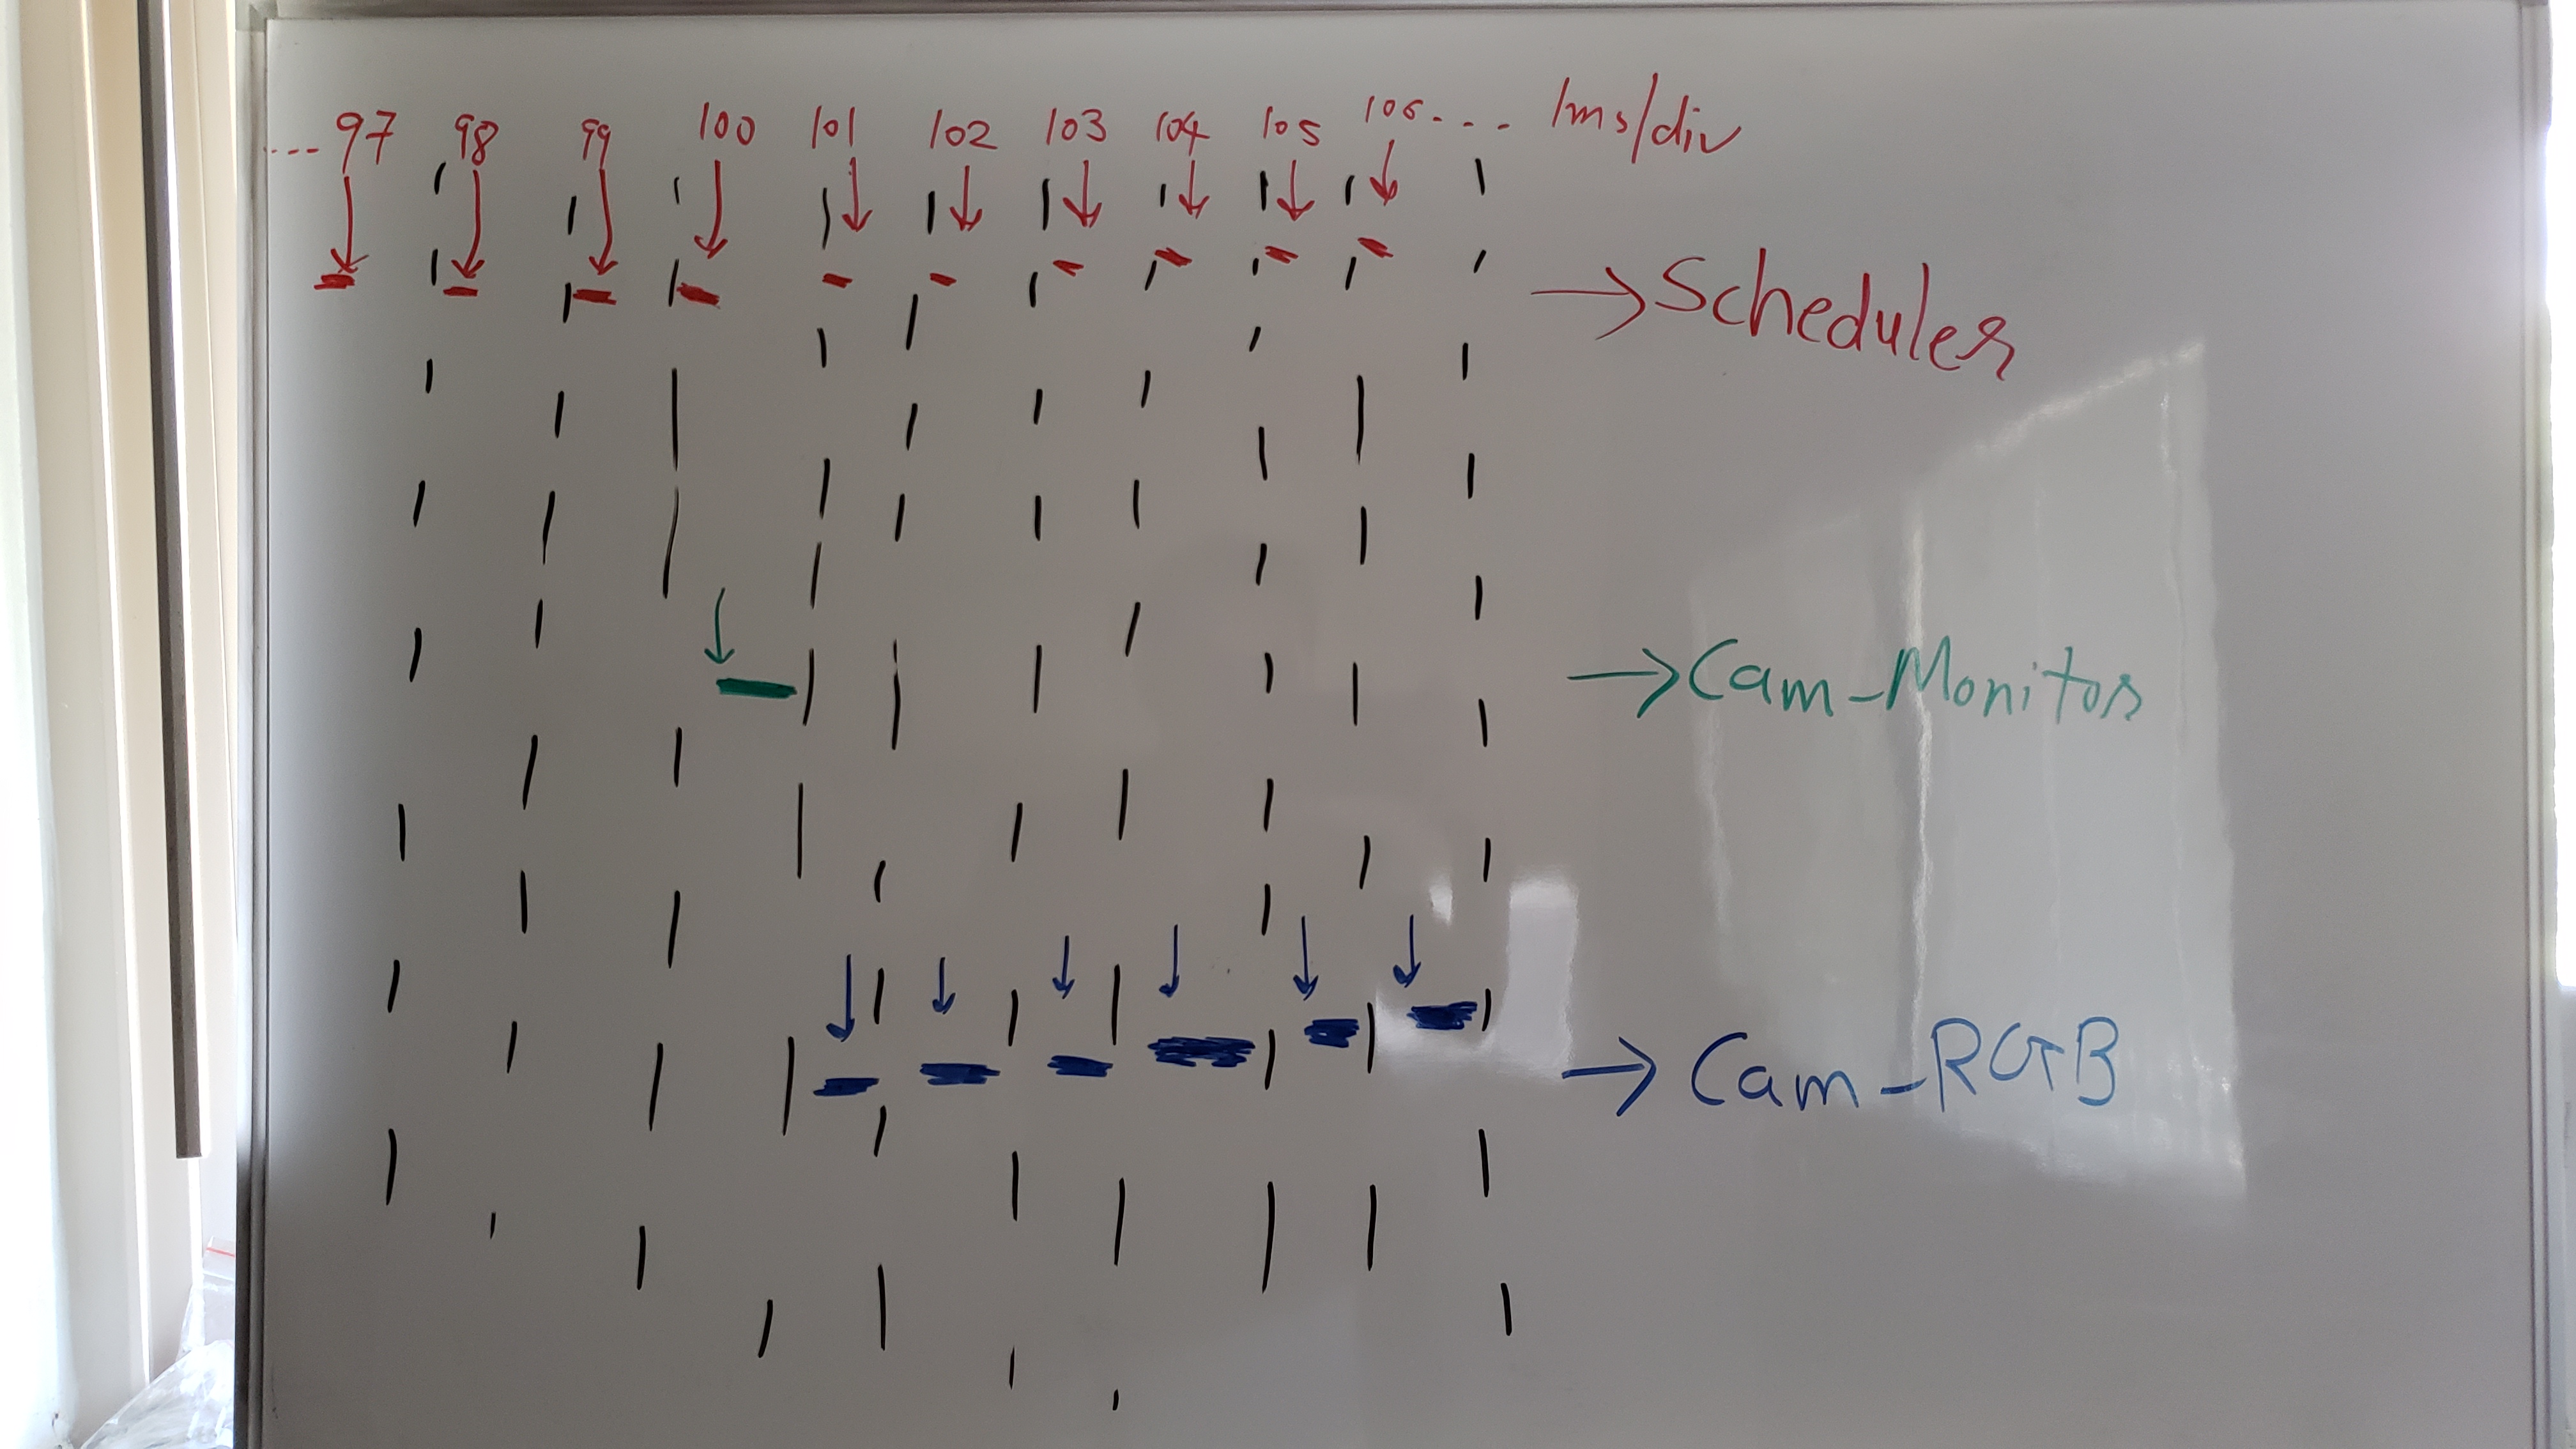 ... 97 98 99 100 101 102 103 104 105 106... 1ms/div
→Scheduler
→Cam-Monitor
→Cam-RGB